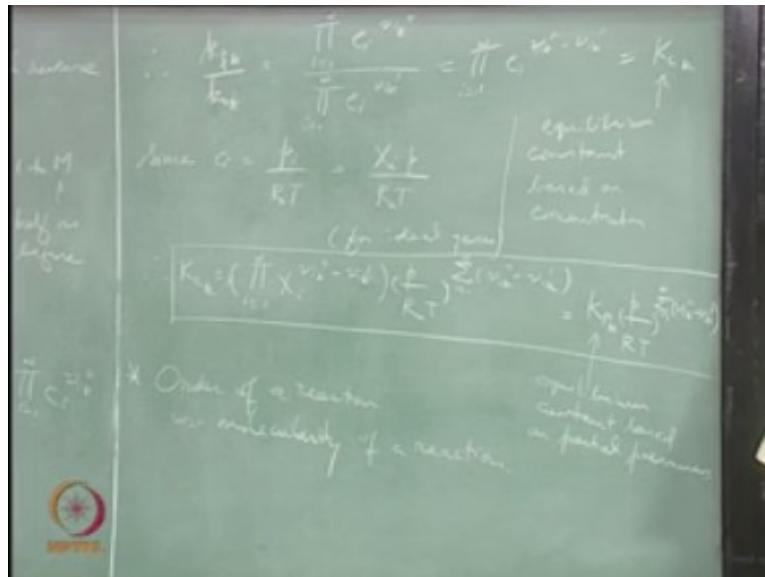 ∴ k_fk / k_bk = ∏ c_i^ν_ik'' / ∏ c_i^ν_ik' = ∏ c_i^(ν_ik'' - ν_ik') = K_ck
equilibrium
constant
based on
concentration
Since c_i = p_i / RT = X_i p / RT
(for ideal gases)
K_ck = (∏ X_i^(ν_ik'' - ν_ik')) (p / RT)^∑(ν_ik'' - ν_ik') = K_pk (p / RT)^∑(ν_ik'' - ν_ik')
equilibrium
constant based
on partial pressures
* Order of a reaction
vs. molecularity of a reaction.
M
half
∏ c_i^ν_ik''
NPTEL